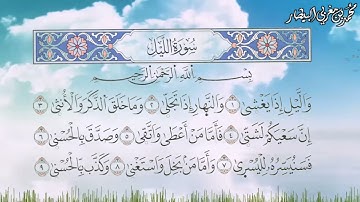 سُورَةُ اللَّيْلِ
بِسْمِ اللَّهِ الرَّحْمَٰنِ الرَّحِيمِ
وَاللَّيْلِ إِذَا يَغْشَىٰ ١ وَالنَّهَارِ إِذَا تَجَلَّىٰ ٢ وَمَا خَلَقَ الذَّكَرَ وَالْأُنْثَىٰ ٣
إِنَّ سَعْيَكُمْ لَشَتَّىٰ ٤ فَأَمَّا مَنْ أَعْطَىٰ وَاتَّقَىٰ ٥ وَصَدَّقَ بِالْحُسْنَىٰ ٦
فَسَنُيَسِّرُهُ لِلْيُسْرَىٰ ٧ وَأَمَّا مَنْ بَخِلَ وَاسْتَغْنَىٰ ٨ وَكَذَّبَ بِالْحُسْنَىٰ ٩